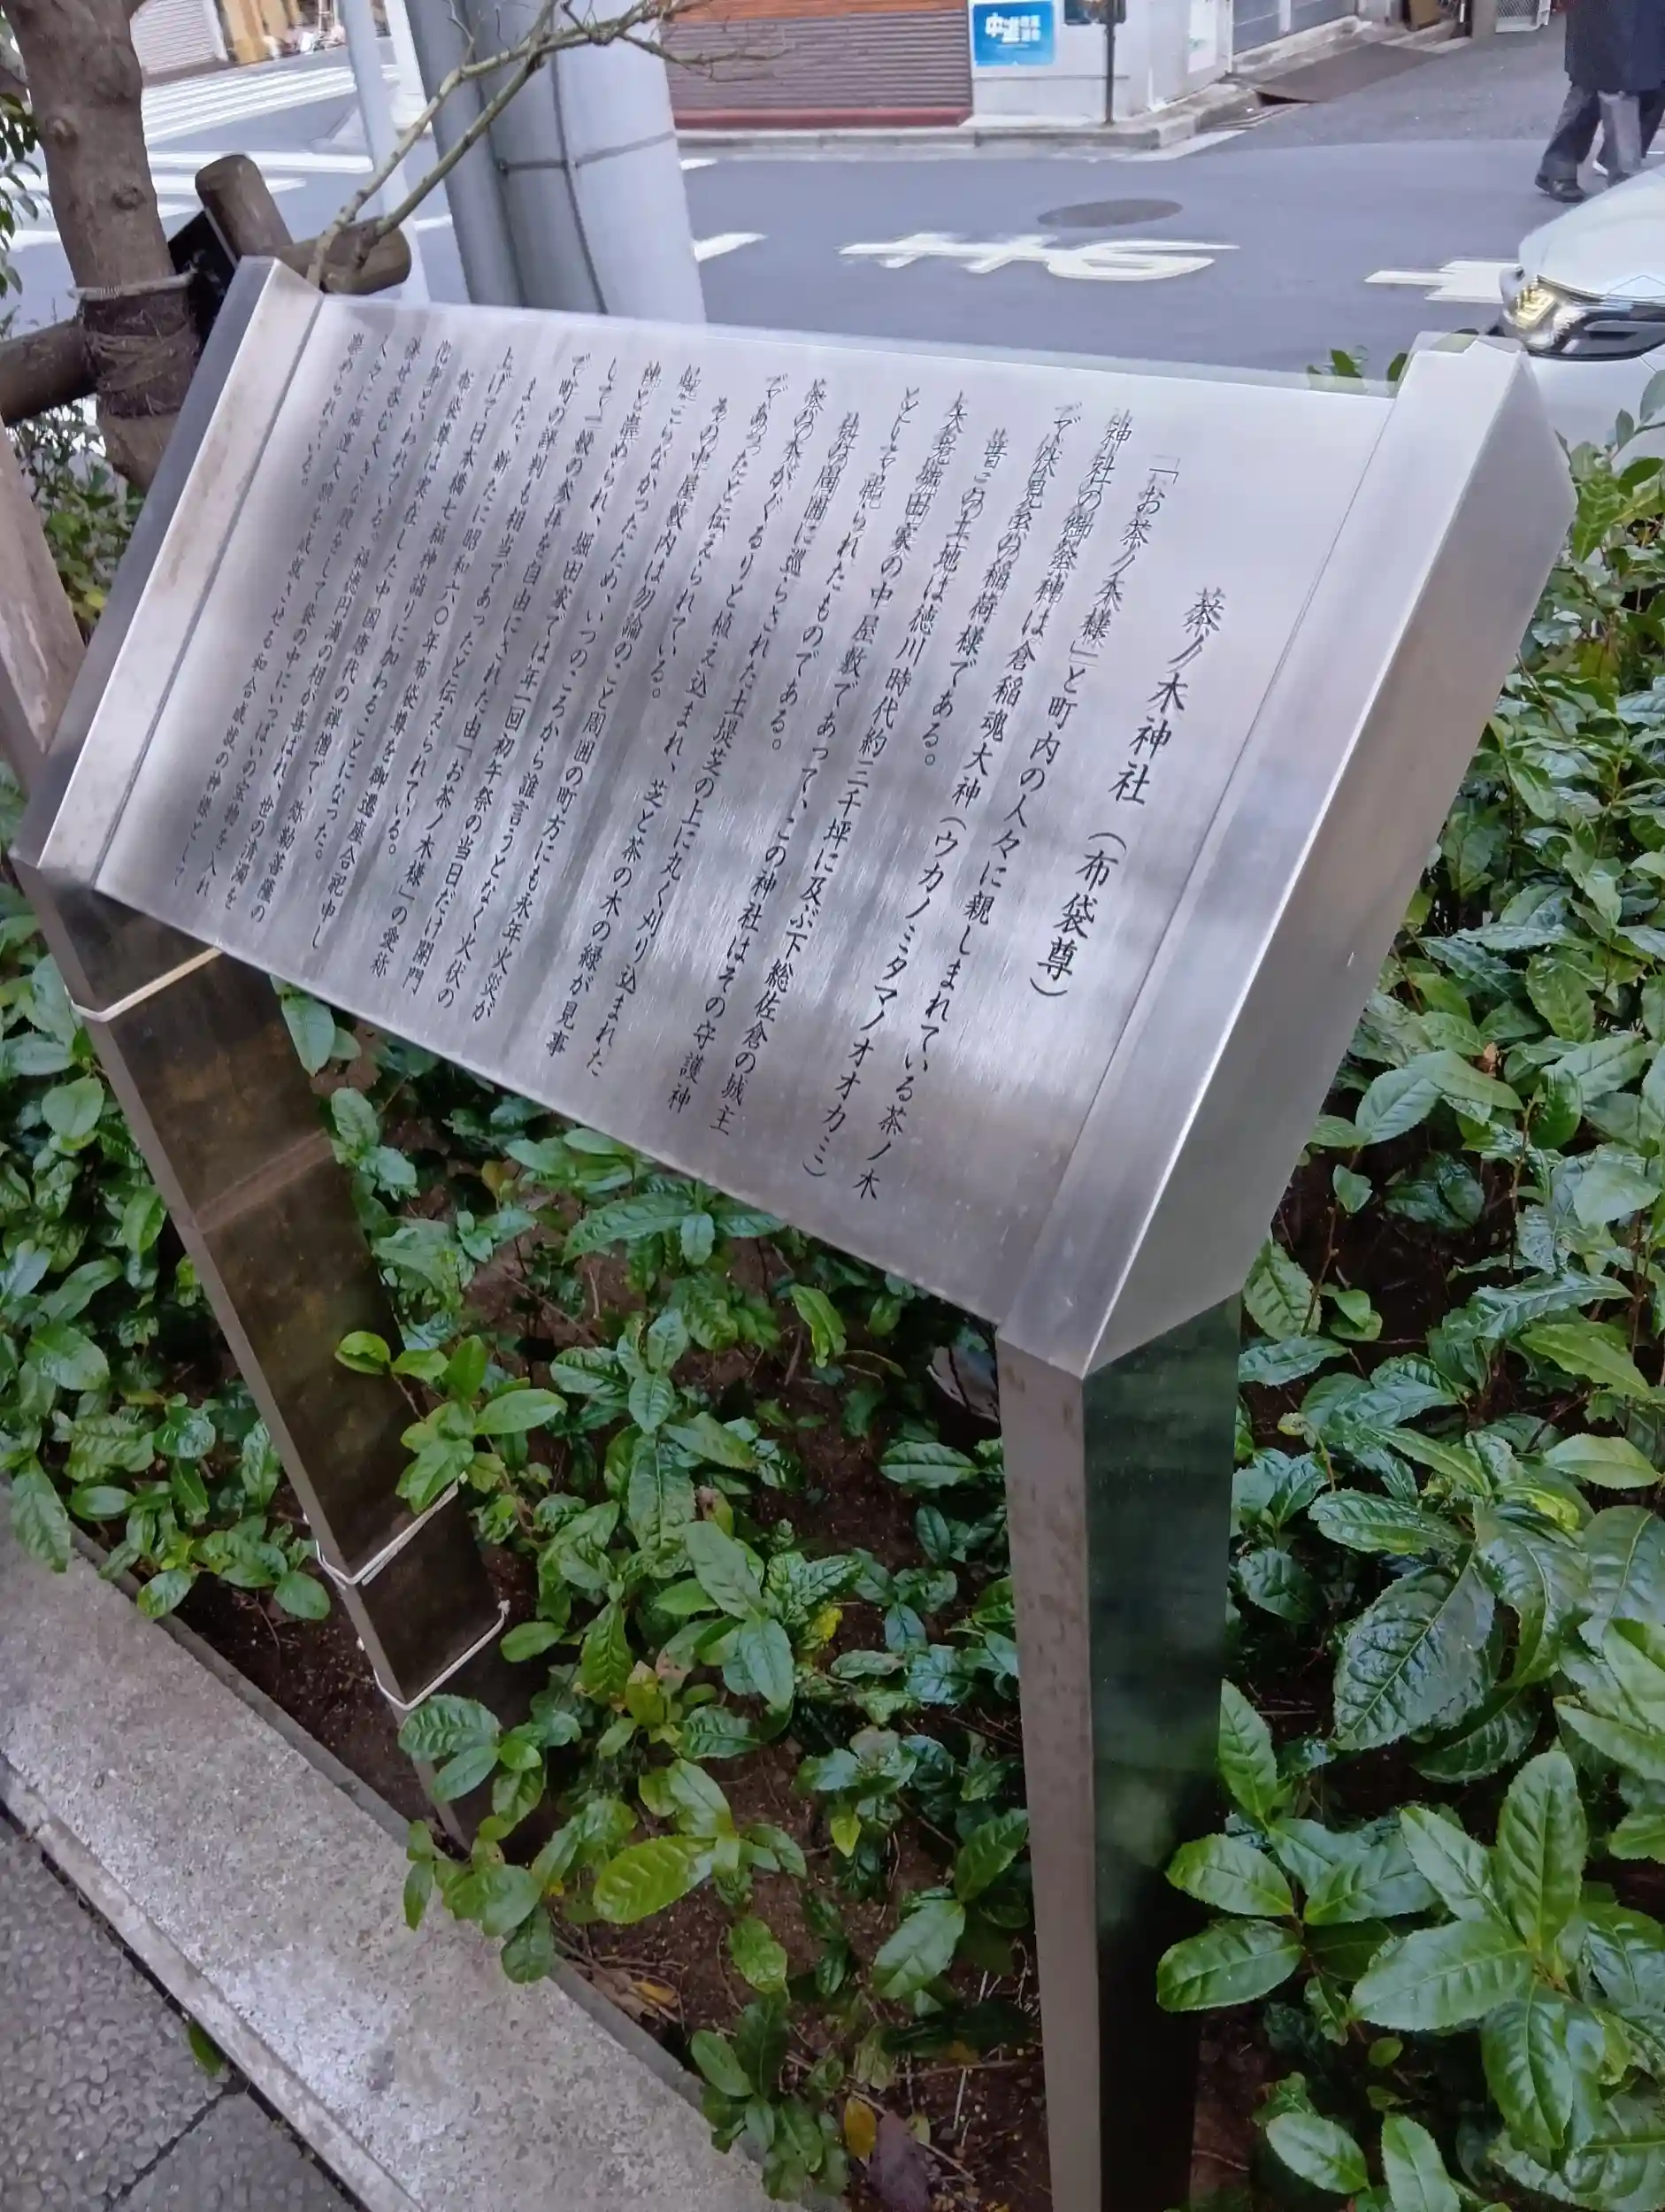 茶ノ木神社 （布袋尊）
「お茶ノ木様」と町内の人々に親しまれている茶ノ木
神社の御祭神は倉稲魂大神（ウカノミタマノオオカミ）
で伏見系の稲荷様である。
昔この土地は徳川時代約三千坪に及ぶ下総佐倉の城主
大老堀田家の中屋敷であって、この神社はその守護神
として祀られたものである。
社の周囲に巡らされた土堤芝の上に丸く刈り込まれた
茶の木がぐるりと植え込まれ、芝と茶の木の緑が見事
であったと伝えられている。
その中屋敷内は勿論のこと周囲の町方にも永年火災が
起こらなかったため、いつのころから誰言うとなく火伏の
神と崇められ、堀田家では年一回初午祭の当日だけ開門
して一般の参拝を自由にされた由「お茶ノ木様」の愛称
で町の評判も相当であったと伝えられている。
また、新たに昭和六〇年布袋尊を御遷座合祀申し
上げて日本橋七福神詣りに加わることになった。
布袋尊は実在した中国唐代の禅僧で、弥勒菩薩の
化身といわれている。福徳円満の相が喜ばれ、世の清濁を
併せ呑む大きな腹をして袋の中にいっぱいの宝物を入れ
人々に福運大願を成就させる和合成就の神様として
崇められている。